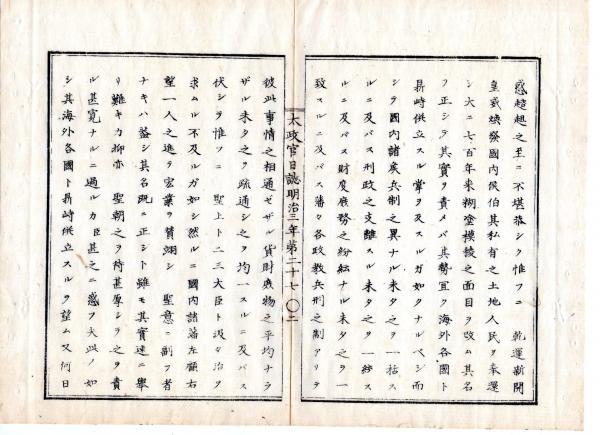 惑趑趄之至ニ不堪蓋シ惟フニ　乾運新開
皇威煥發國内侯伯其私有之土地人民ヲ奉還
シ大ニ七百年来糊塗模稜之面目ヲ改ム其名
ヲ正シテ其實ヲ責メバ其勢宜ク海外各國ト
鼎峙併立スル掌ヲ及スルガ如クナルベシ而
シテ國内諸侯兵制之異ナル未タ之ヲ一括ス
ルニ及バス刑政之支離スル未タ之ヲ一終ス
ルニ及バス財度廢務之紛紜ナル未タ之ヲ一
致スルニ及バス藩々各政教兵刑之制アリテ
太政官日誌明治三年第二十七〇二
彼此事情之相通ゼザル貨財融物之平均ナラ
ザル未タ之ヲ疏通シ之ヲ均一スルニ及バス
伏シテ惟フニ　聖上ト二三大臣ト汲々治ヲ
求ムル不及ルガ如シ然ルニ國内諸藩左顧右
望一人之進テ宏業ヲ賛翊シ　聖意ニ副フ者
ナキハ蓋シ其名既ニ正シト雖モ其實速ニ舉
リ難キカ抑亦　聖朝之ヲ待甚厚シテ之ヲ責
ル甚寛ナルニ過ルカ臣甚之ニ惑フ夫此ノ如
シ其海外各國ト鼎峙併立スルヲ望ム又何日